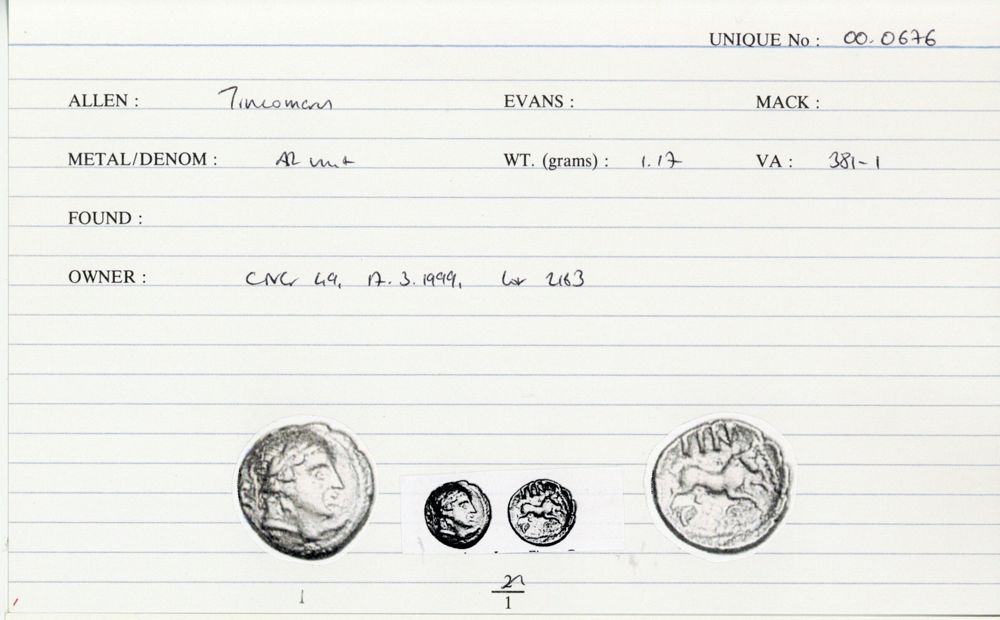 UNIQUE No : 00.0676
ALLEN : Tincomarus EVANS : MACK :
METAL/DENOM : AR unit WT. (grams) : 1.17 VA : 381-1
FOUND :
OWNER : CNG 49, 17.3.1999, Lot 2163
1
2
1